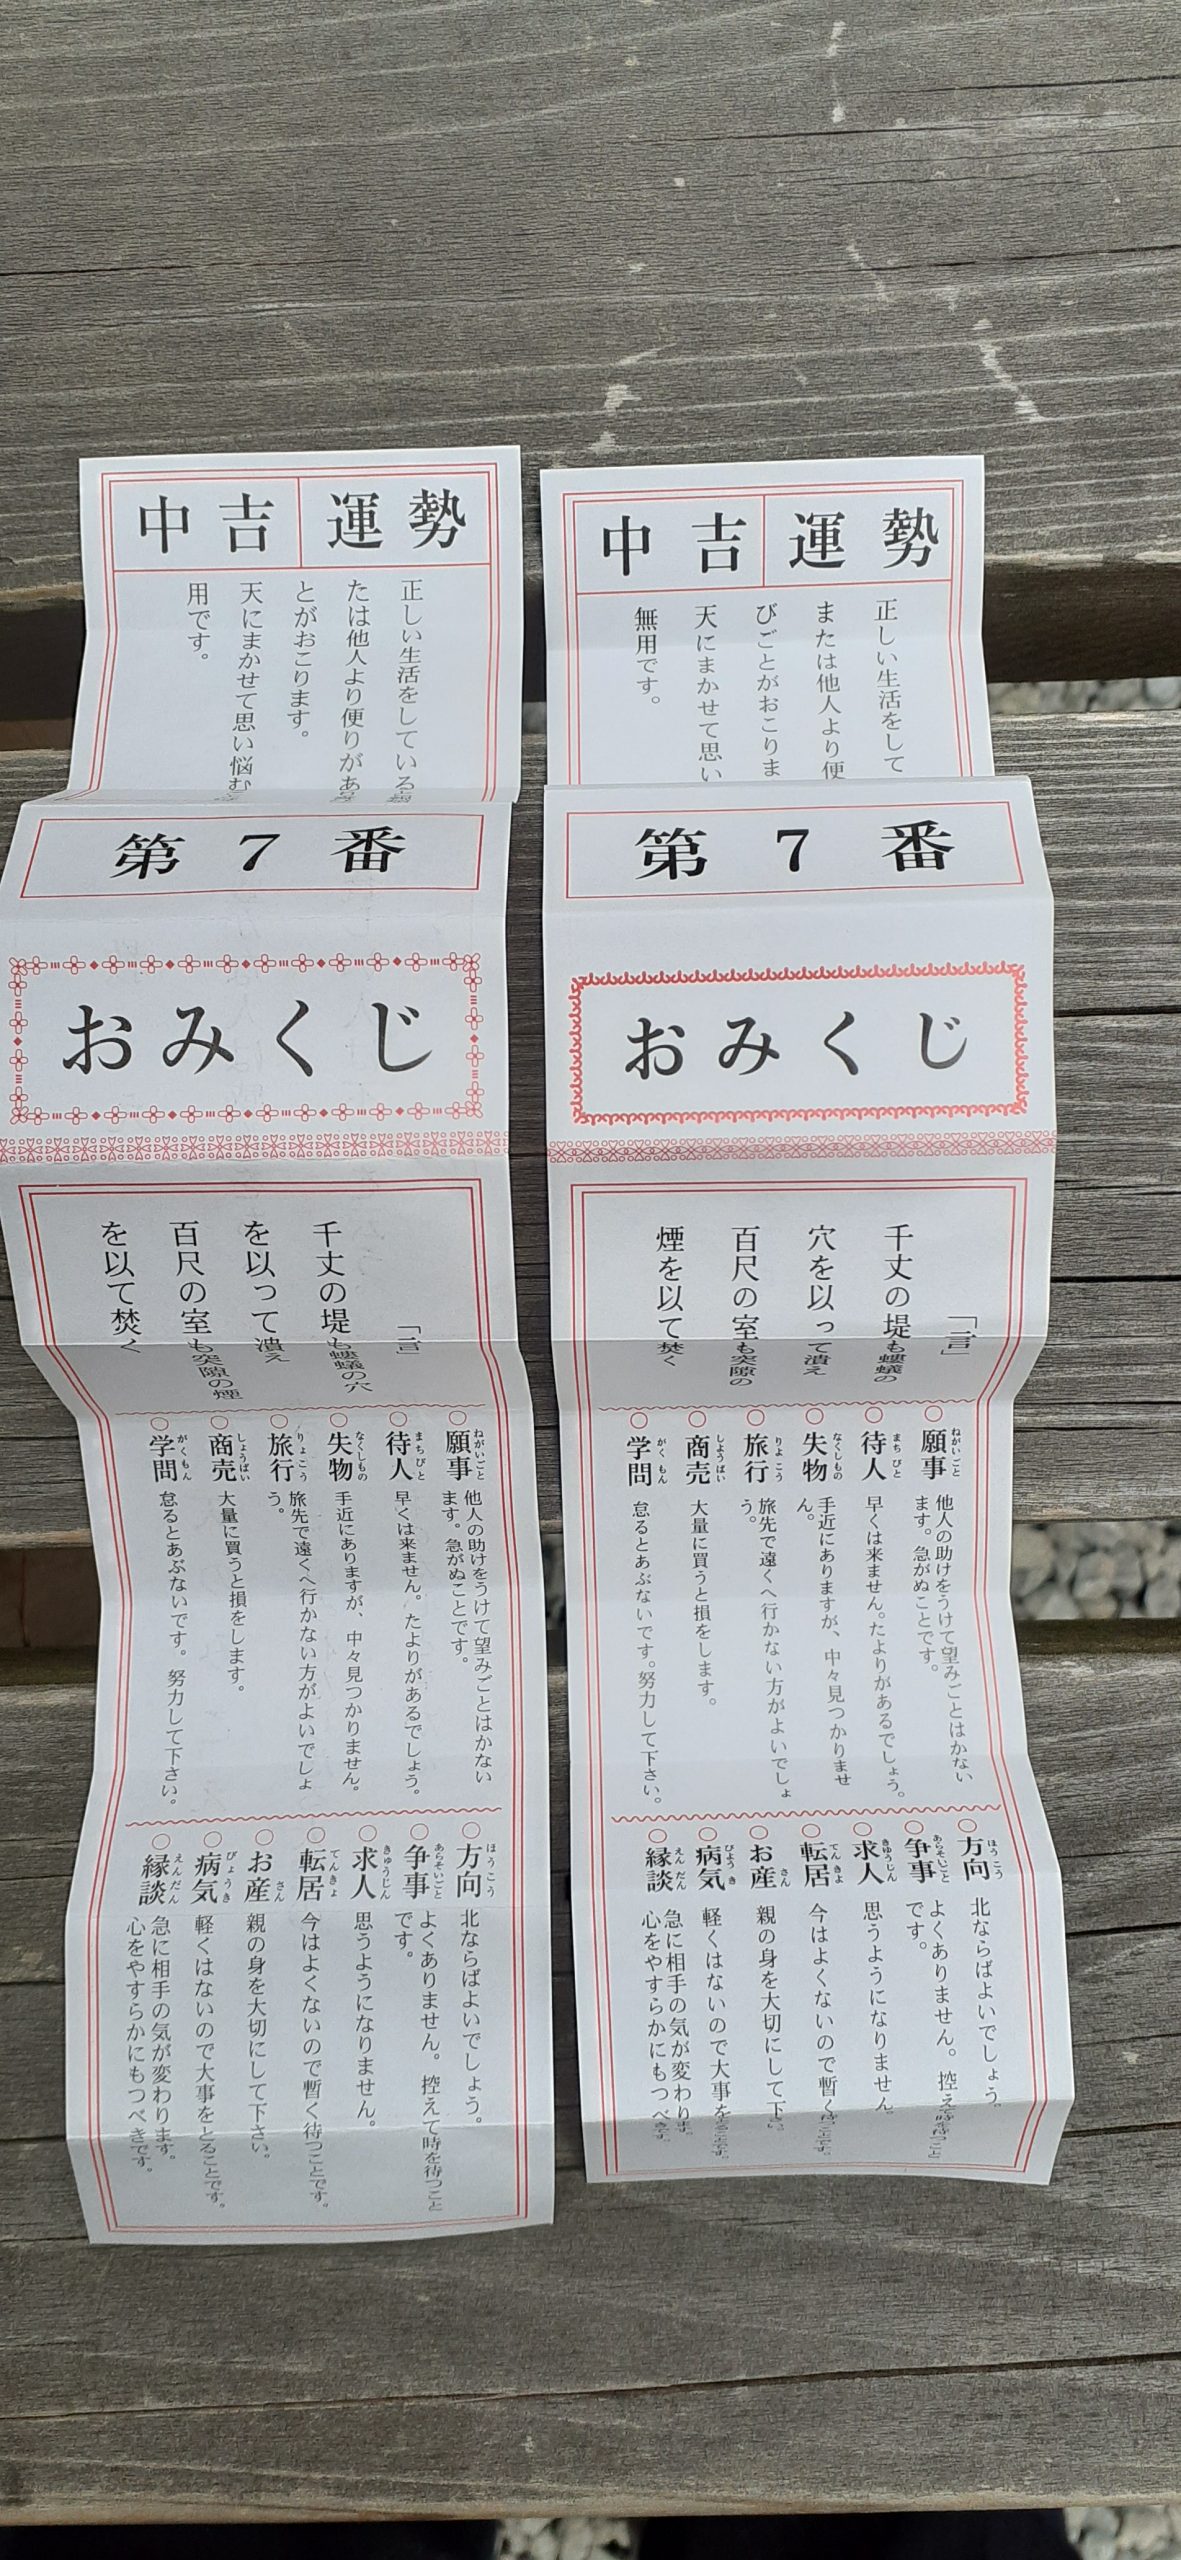 中吉
運勢
正しい生活をしている
たは他人より便りがあ
とがおこります。
天にまかせて思い悩む
用です。
第7番
おみくじ
「一言」
千丈の堤も螻蟻の穴
を以って潰え
百尺の室も突隙の煙
を以て焚く
○願事 ねがいごと
他人の助けをうけて望みごとはかない
ます。急がぬことです。
○待人 まちびと
早くは来ません。たよりがあるでしょう。
○失物 なくしもの
手近にありますが、中々見つかりません。
○旅行 りょこう
旅先で遠くへ行かない方がよいでしょ
う。
○商売 しょうばい
大量に買うと損をします。
○学問 がくもん
怠るとあぶないです。努力して下さい。
○方向 ほうこう
北ならばよいでしょう。
○争事 あらそいごと
よくありません。控えて時を待つこと
です。
○求人 きゅうじん
思うようになりません。
○転居 てんきょ
今はよくないので暫く待つことです。
○お産 さん
親の身を大切にして下さい。
○病気 びょうき
軽くはないので大事をとることです。
○縁談 えんだん
急に相手の気が変わります。
心をやすらかにもつべきです。
中吉
運勢
正しい生活をして
または他人より便
びごとがおこりま
天にまかせて思い
無用です。
第7番
おみくじ
「一言」
千丈の堤も螻蟻の
穴を以って潰え
百尺の室も突隙の
煙を以て焚く
○願事 ねがいごと
他人の助けをうけて望みごとはかない
ます。急がぬことです。
○待人 まちびと
早くは来ません。たよりがあるでしょう。
○失物 なくしもの
手近にありますが、中々見つかりませ
ん。
○旅行 りょこう
旅先で遠くへ行かない方がよいでしょ
う。
○商売 しょうばい
大量に買うと損をします。
○学問 がくもん
怠るとあぶないです。努力して下さい。
○方向 ほうこう
北ならばよいでしょう。
○争事 あらそいごと
よくありません。控えて時を待つこと
です。
○求人 きゅうじん
思うようになりません。
○転居 てんきょ
今はよくないので暫く待つことです。
○お産 さん
親の身を大切にして下さい。
○病気 びょうき
軽くはないので大事をとることです。
○縁談 えんだん
急に相手の気が変わります。
心をやすらかにもつべきです。